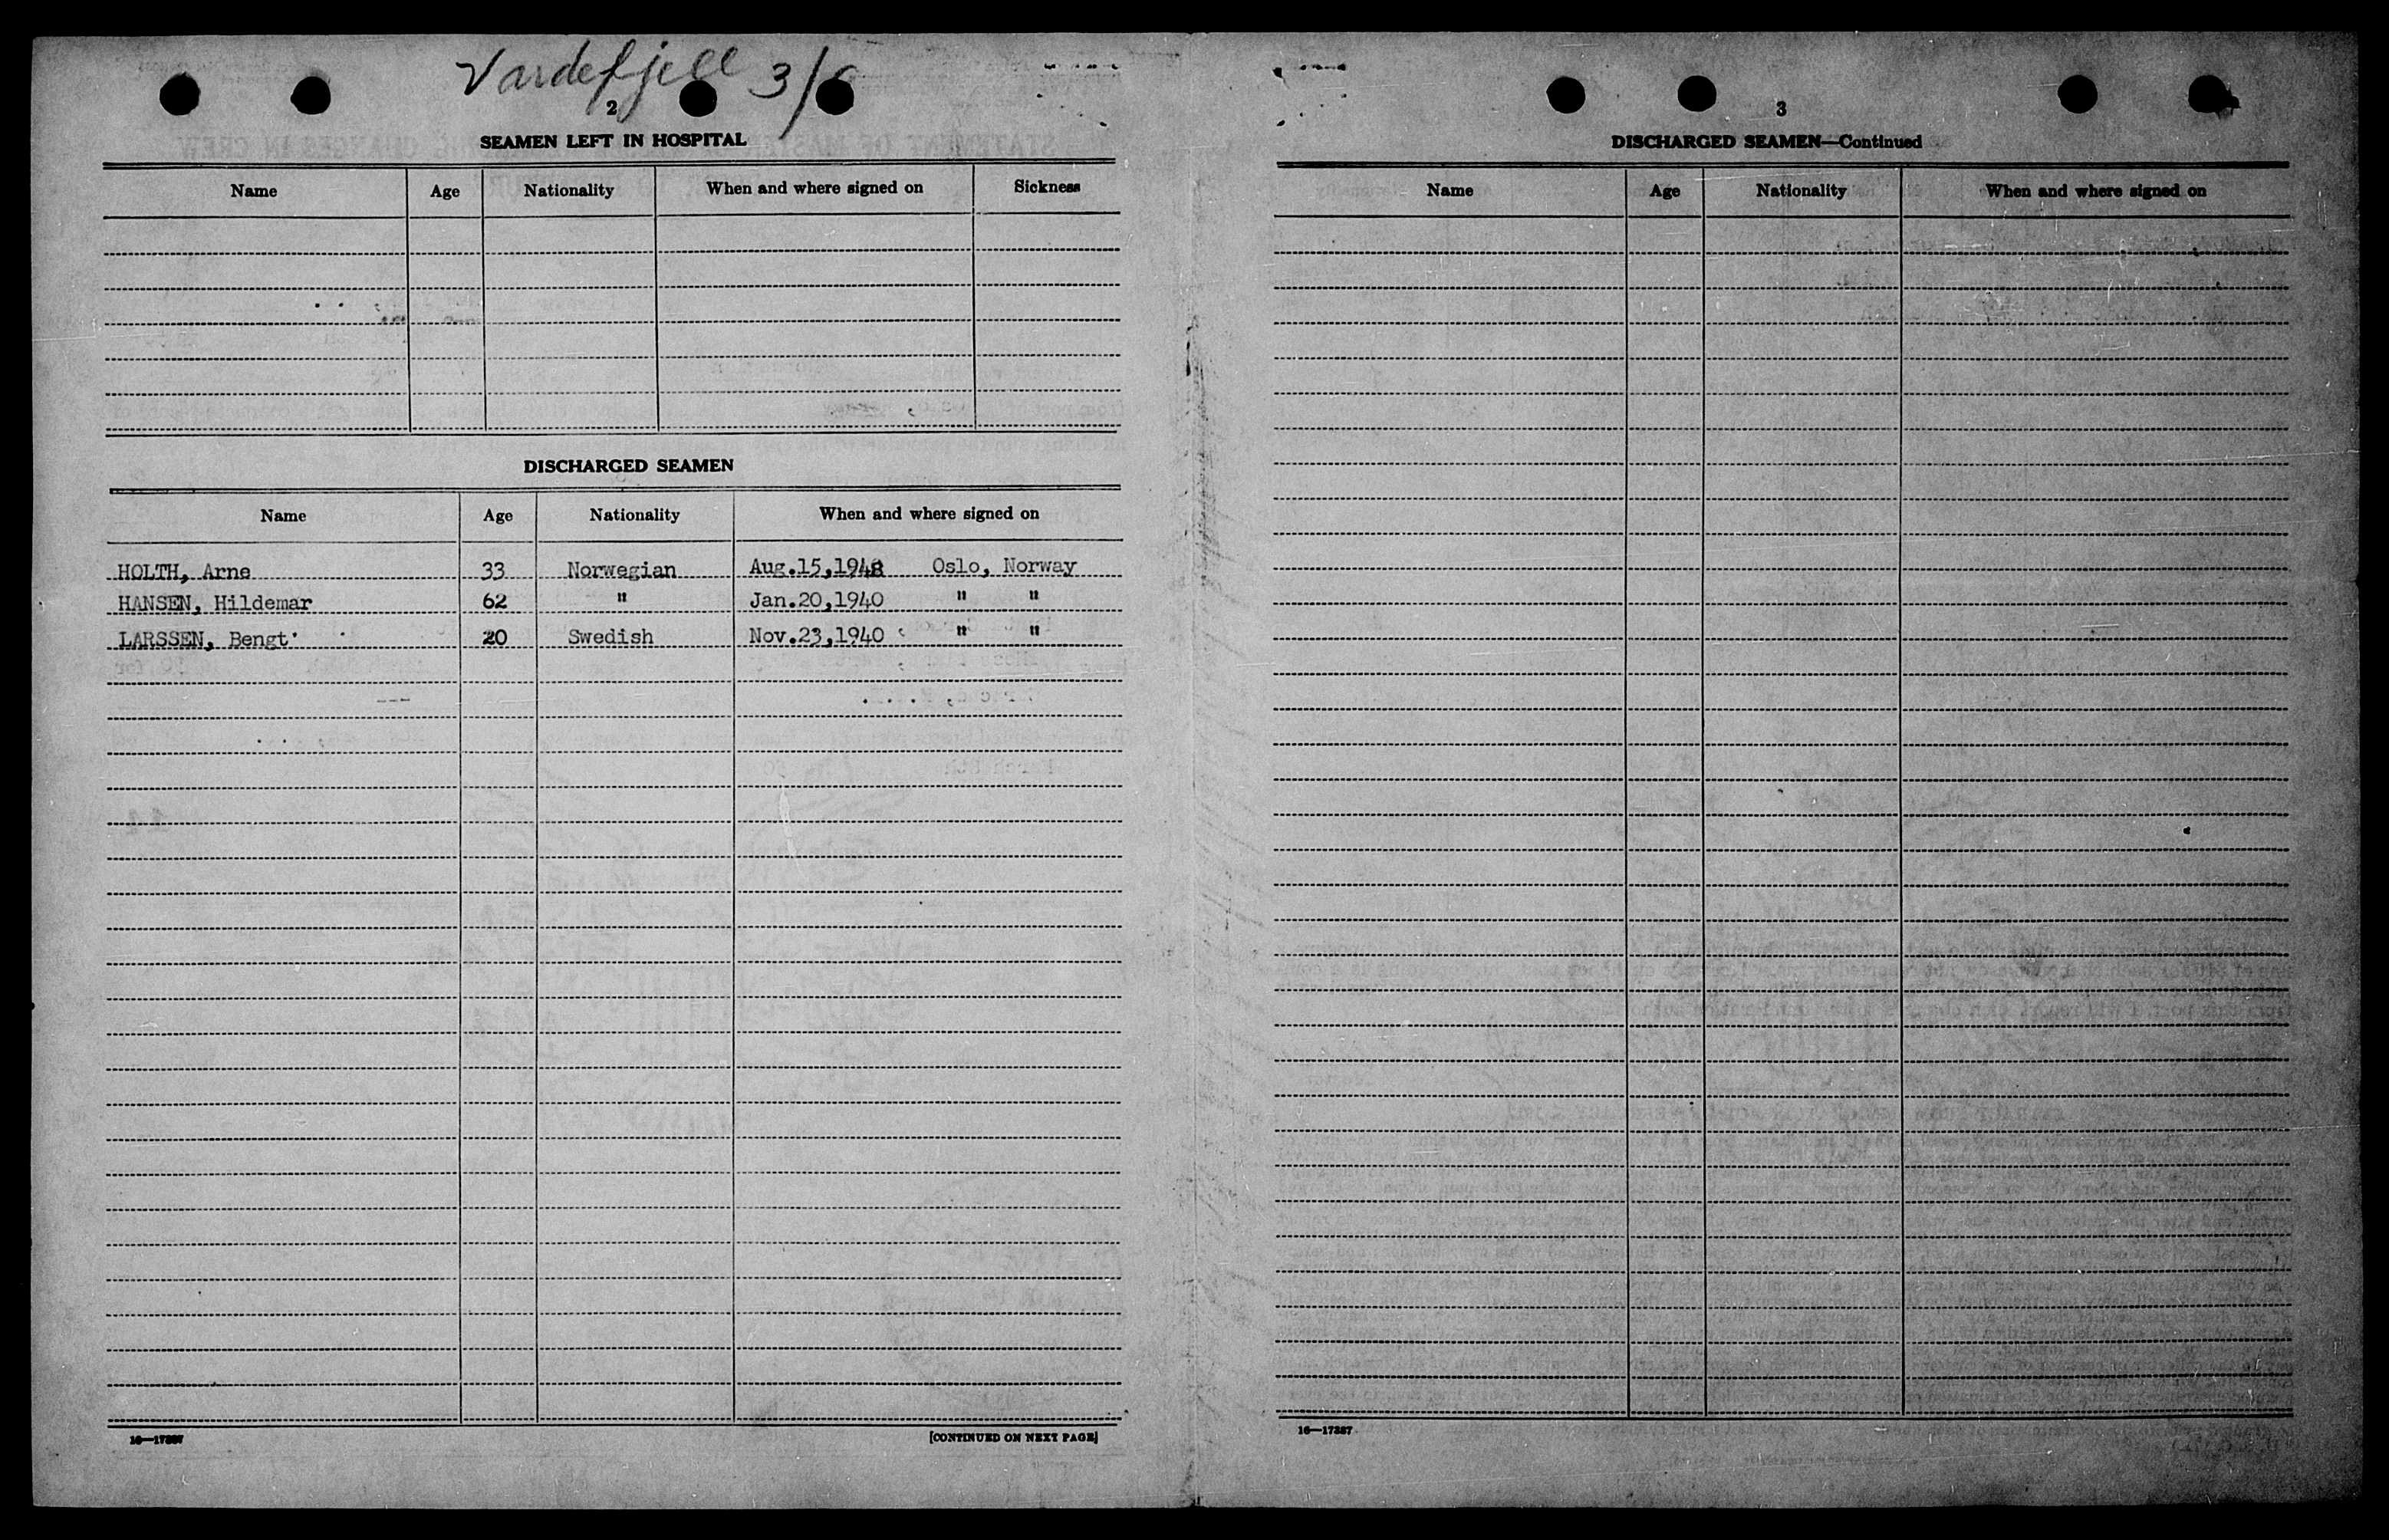 Vardefjell 3/
2
SEAMEN LEFT IN HOSPITAL
Name Age Nationality When and where signed on Sickness
DISCHARGED SEAMEN
Name Age Nationality When and where signed on
HOLTH, Arne 33 Norwegian Aug.15,1948 Oslo, Norway
HANSEN, Hildemar 62 " Jan.20,1940 " "
LARSSEN, Bengt 20 Swedish Nov.23,1940 " "
16—17387
[CONTINUED ON NEXT PAGE]
3
DISCHARGED SEAMEN—Continued
Name Age Nationality When and where signed on
16—17387